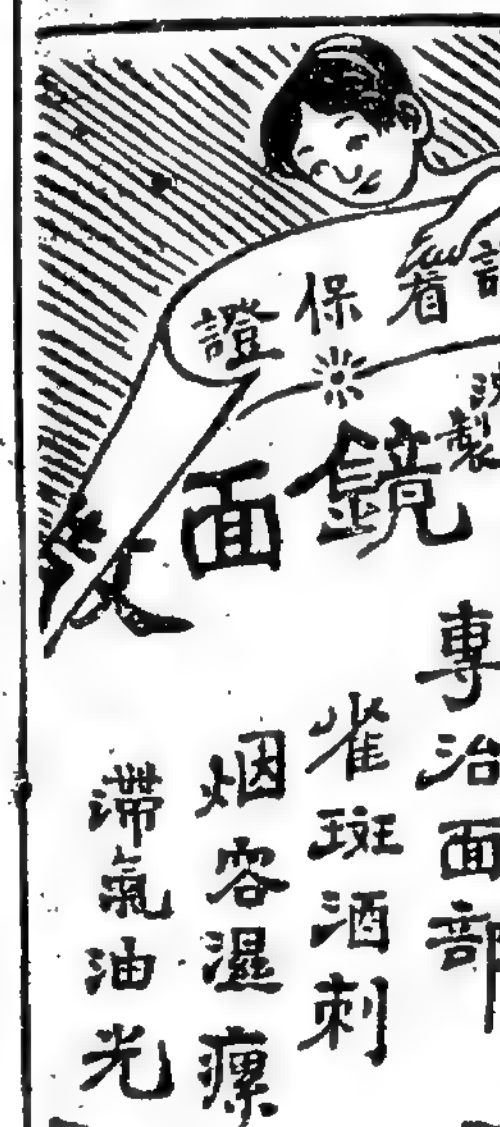 看保證
製
鏡面
專治面部
雀斑酒刺
烟容濕瘰
滯氣油光